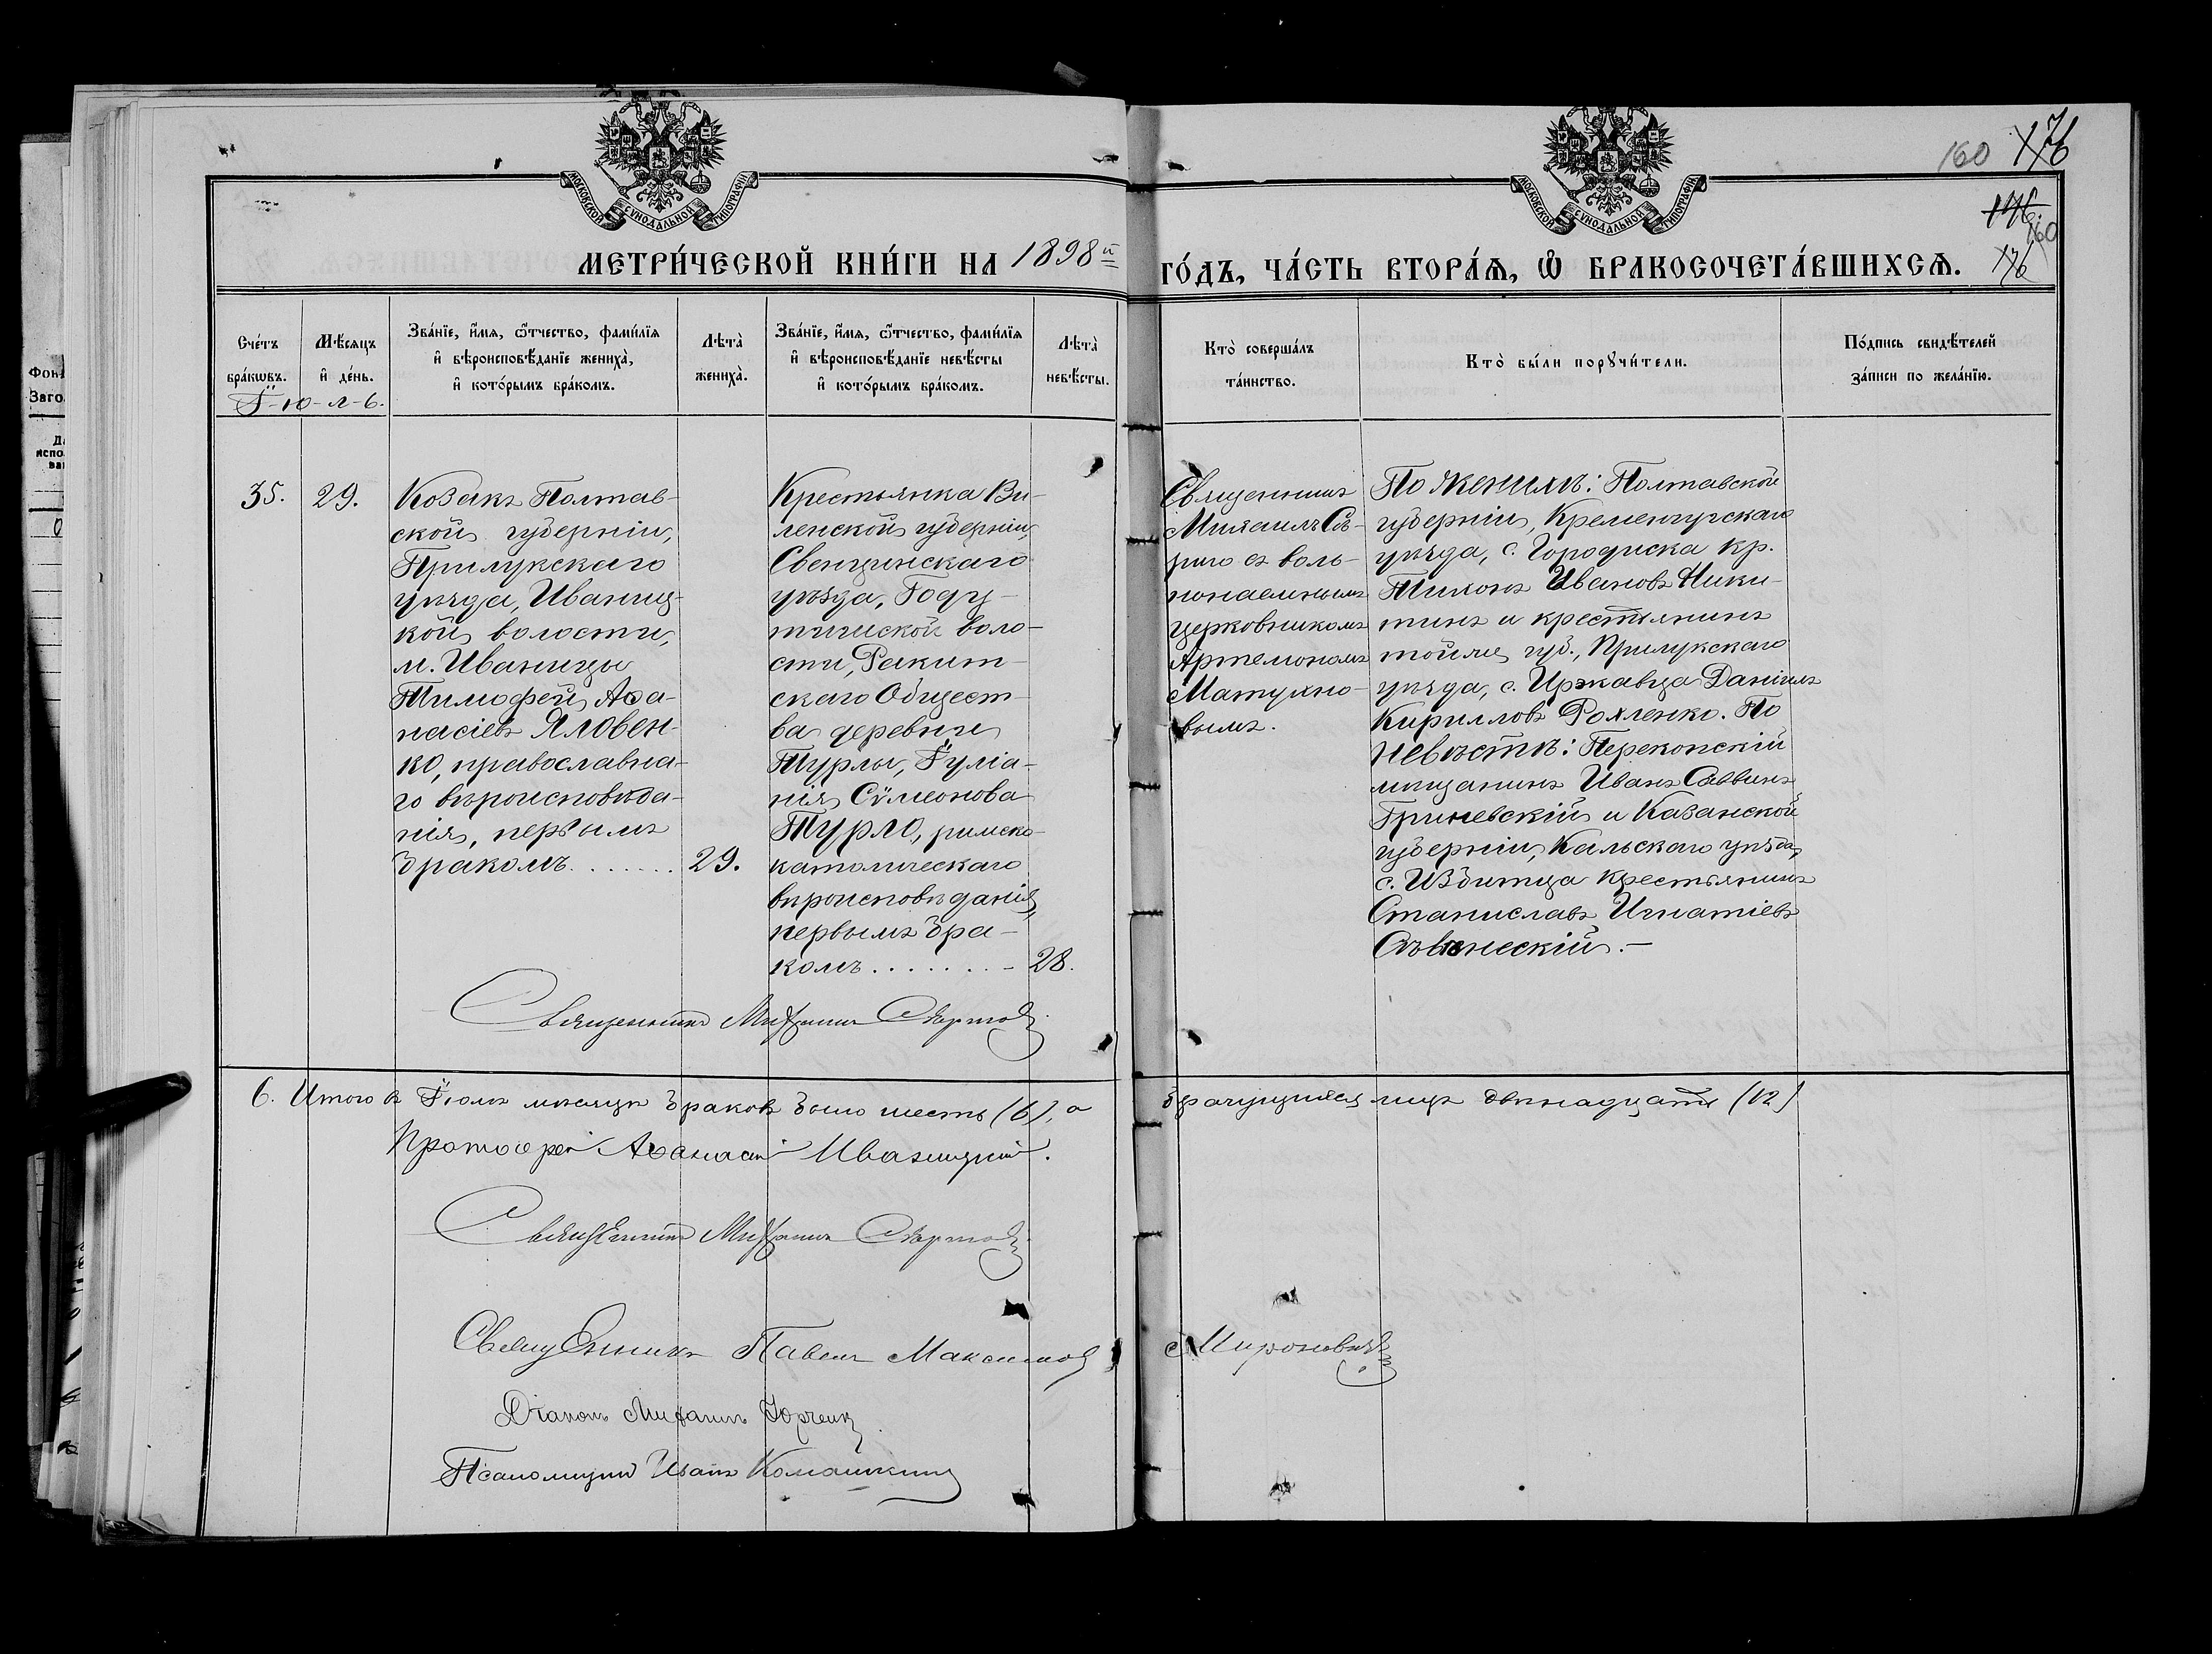 160 176
176.
160
176
МОСКОВСКОЙ СѴНОДАЛЬНОЙ ТИПОГРАФІИ
МОСКОВСКОЙ СѴНОДАЛЬНОЙ ТИПОГРАФІИ
МЕТРИ́ЧЕСКОЙ КНИ́ГИ НА 1898й
ГО́ДЪ, ЧА́СТЬ ВТОРА́Ѧ, Ѽ БРАКОСОЧЕТА́ВШИХСѦ.
Сче́тъ бра́кѡвъ.
Мѣ́сяцъ и҆ де́нь.
Зва́нїе, и҆́мѧ, ѻ҆́тчество, фамі́лїѧ
и҆ вѣроисповѣ́данїе жениха̀,
и҆ кото́рымъ бра́комъ.
Лѣта̀
жениха̀.
Зва́нїе, и҆́мѧ, ѻ҆́тчество, фамі́лїѧ
и҆ вѣроисповѣ́данїе невѣ́сты
и҆ кото́рымъ бра́комъ.
Лѣта̀
невѣ́сты.
Кто̀ соверша́лъ
та́инство.
Кто̀ бы́ли порꙋчи́тели.
По́дпись свидѣ́телей
за́писи по жела́нїю.
Ї-ю-л-ь.
35.
29.
Козакъ Полтав-
ской губерніи,
Прилукскаго
уѣзда, Иваниц-
кой волости,
м. Иваницы
Тимофей Аѳа-
насіевъ Яловен-
ко, православна-
го вѣроисповѣда-
нія, первымъ
бракомъ. . . . . . .
29.
Крестьянка Ви-
ленской губерніи,
Свенцянскаго
уѣзда, Году-
тишской воло-
сти, Ракит-
скаго Общест-
ва деревни
Турлы, Їуліа-
нія Сѵмеонова
Турло, римско-
католическаго
вѣроисповѣданія,
первымъ бра-
комъ . . . . . . . -
28.
Священникъ
Михаилъ
съ воль-
нонаемнымъ
церковникомъ
Артемономъ
Матухно-
вымъ.
По женихѣ: Полтавской
губерніи, Кременчугскаго
уѣзда, с. Городиска кр.
Тихонъ Ивановъ Ники-
тинъ и крестьянинъ
тойже губ., Прилукскаго
уѣзда, с. Иржавца Даніилъ
Кирилловъ Рохленко. По
невѣстѣ: Перекопскій
мѣщанинъ Иванъ Саввинъ
Гриневскій и Казанской
губерніи, уѣзда,
с. крестьянинъ
Станиславъ Игнатіевъ
Священникъ Михаилъ
6. Итого въ Їюлѣ мѣсяцѣ браковъ было шесть (6), а
брачущихся лицъ двѣнадцать (12)
Протоіерей Аѳанасій Иваницкій.
Священникъ Михаилъ
Священникъ Павелъ Максимов
Мироновичъ
Діаконъ Михаилъ Юрченко
Псаломщикъ Иванъ